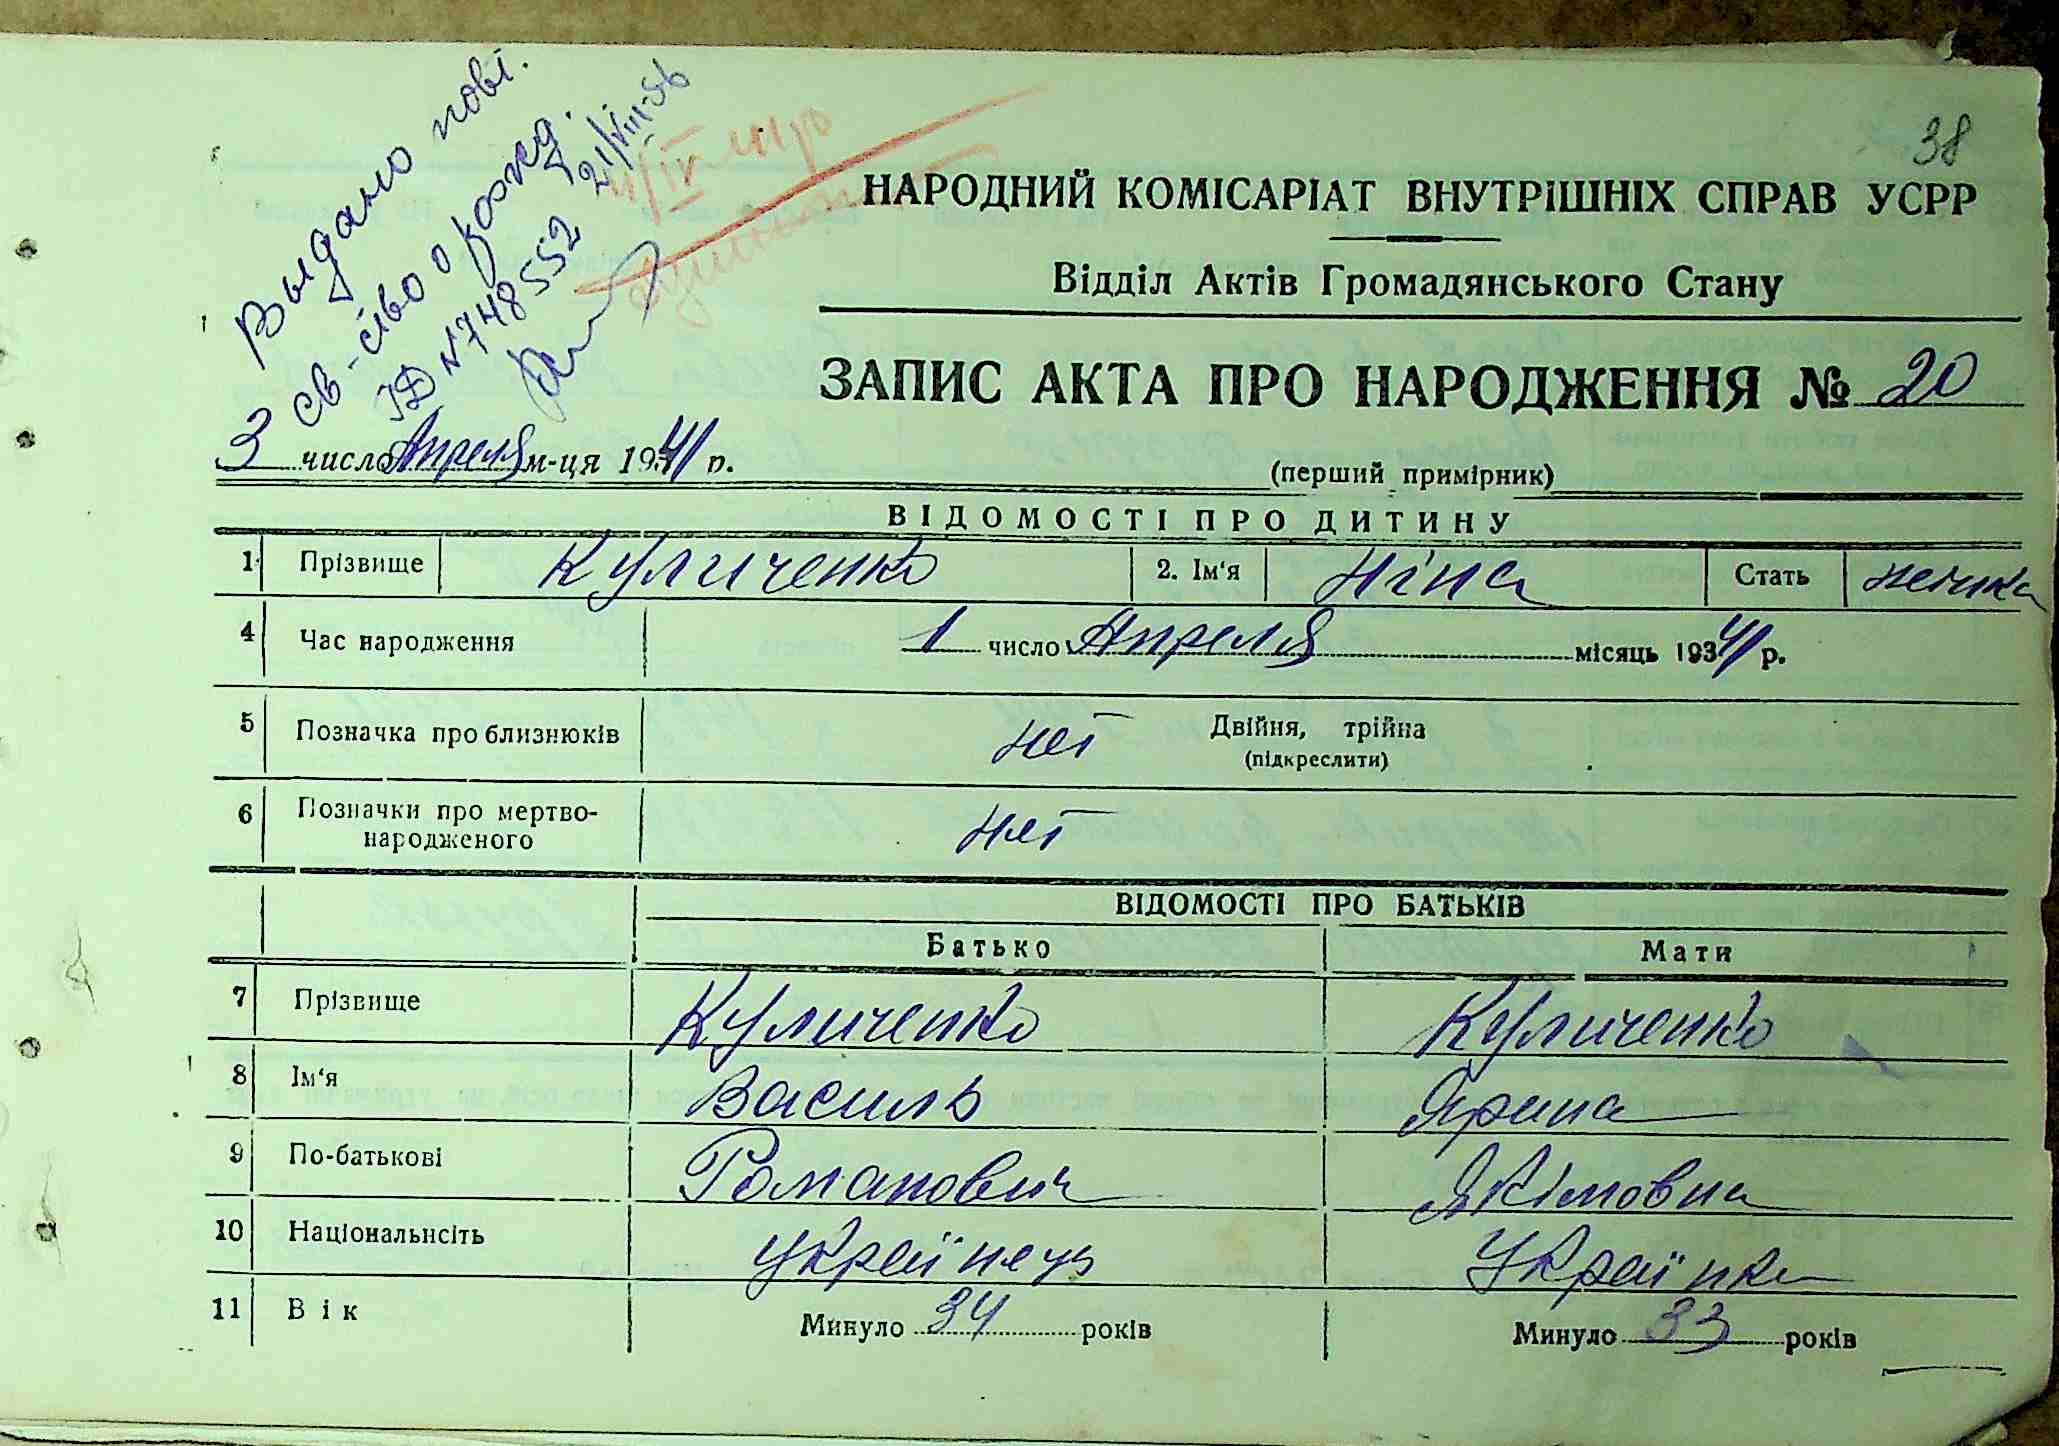 38
Выдано повт.
св-ство о рожд.
ІД №748552 21/VIII-56
НАРОДНИЙ КОМІСАРІАТ ВНУТРІШНІХ СПРАВ УСРР
Відділ Актів Громадянського Стану
ЗАПИС АКТА ПРО НАРОДЖЕННЯ № 20
3 число Апреля м-ця 1941 р.
(перший примірник)
ВІДОМОСТІ ПРО ДИТИНУ
1 Прізвище Куличенко 2. Ім'я Ніна Стать женска
4 Час народження 1 число Апреля місяць 19341 р.
5 Позначка про близнюків нет Двійня, трійна
(підкреслити)
6 Позначки про мертво-
народженого нет
ВІДОМОСТІ ПРО БАТЬКІВ
Батько Мати
7 Прізвище Куличенко Куличенко
8 Ім'я Василь Ярина
9 По-батькові Романович Якімовна
10 Національнсіть Українець Українка
11 Вік Минуло 34 років Минуло 33 років